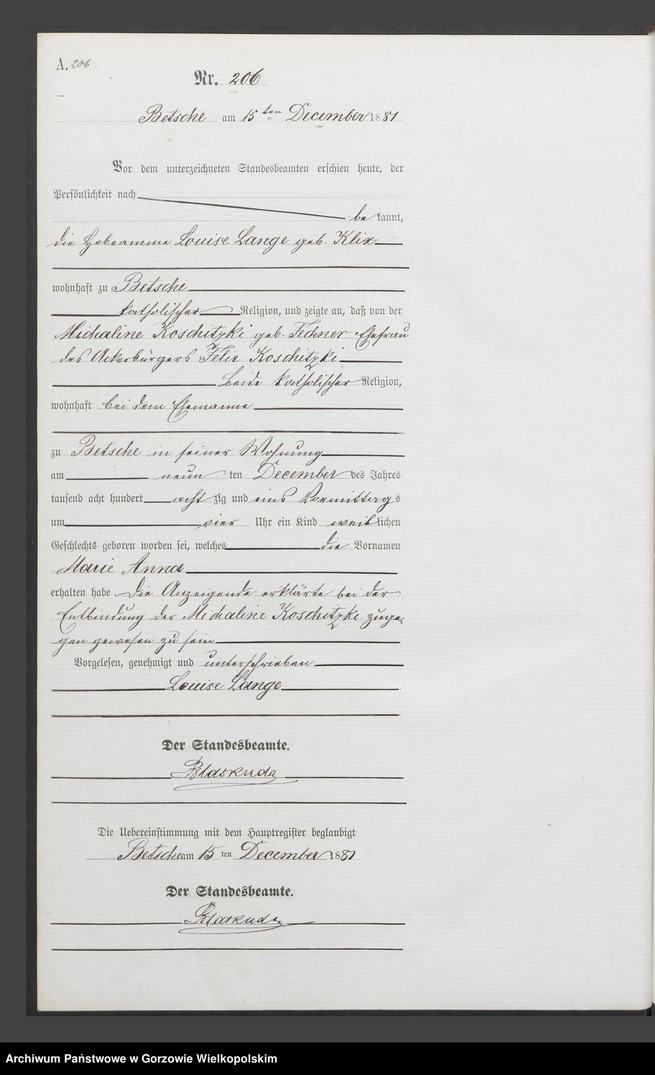 A. 206
Nr. 206
Betsche am 15ten December 1881
Vor dem unterzeichneten Standesbeamten erschien heute, der
Persönlichkeit nach
be kannt,
die Hebeamme Louise Lange geb. Klix
wohnhaft zu Betsche
katholischer Religion, und zeigte an, daß von der
Michaline Koschitzki geb. Fechner Ehefrau
des Ackerbürgers Felix Koschitzki
beide katholischer Religion,
wohnhaft bei dem Ehemanne
zu Betsche in seiner Wohnung
am neun ten December des Jahres
tausend acht hundert acht zig und eins Vormittags
um vier Uhr ein Kind weiblichen
Geschlechts geboren worden sei, welches die Vornamen
Marie Anna
erhalten habe. Die Anzeigende erklärte bei der
Entbindung der Michaline Koschitzki zuge-
gen gewesen zu sein
Vorgelesen, genehmigt und unterschrieben
Louise Lange
Der Standesbeamte.
Die Uebereinstimmung mit dem Hauptregister beglaubigt
Betsche am 15 ten December 1881
Der Standesbeamte.
Archiwum Państwowe w Gorzowie Wielkopolskim